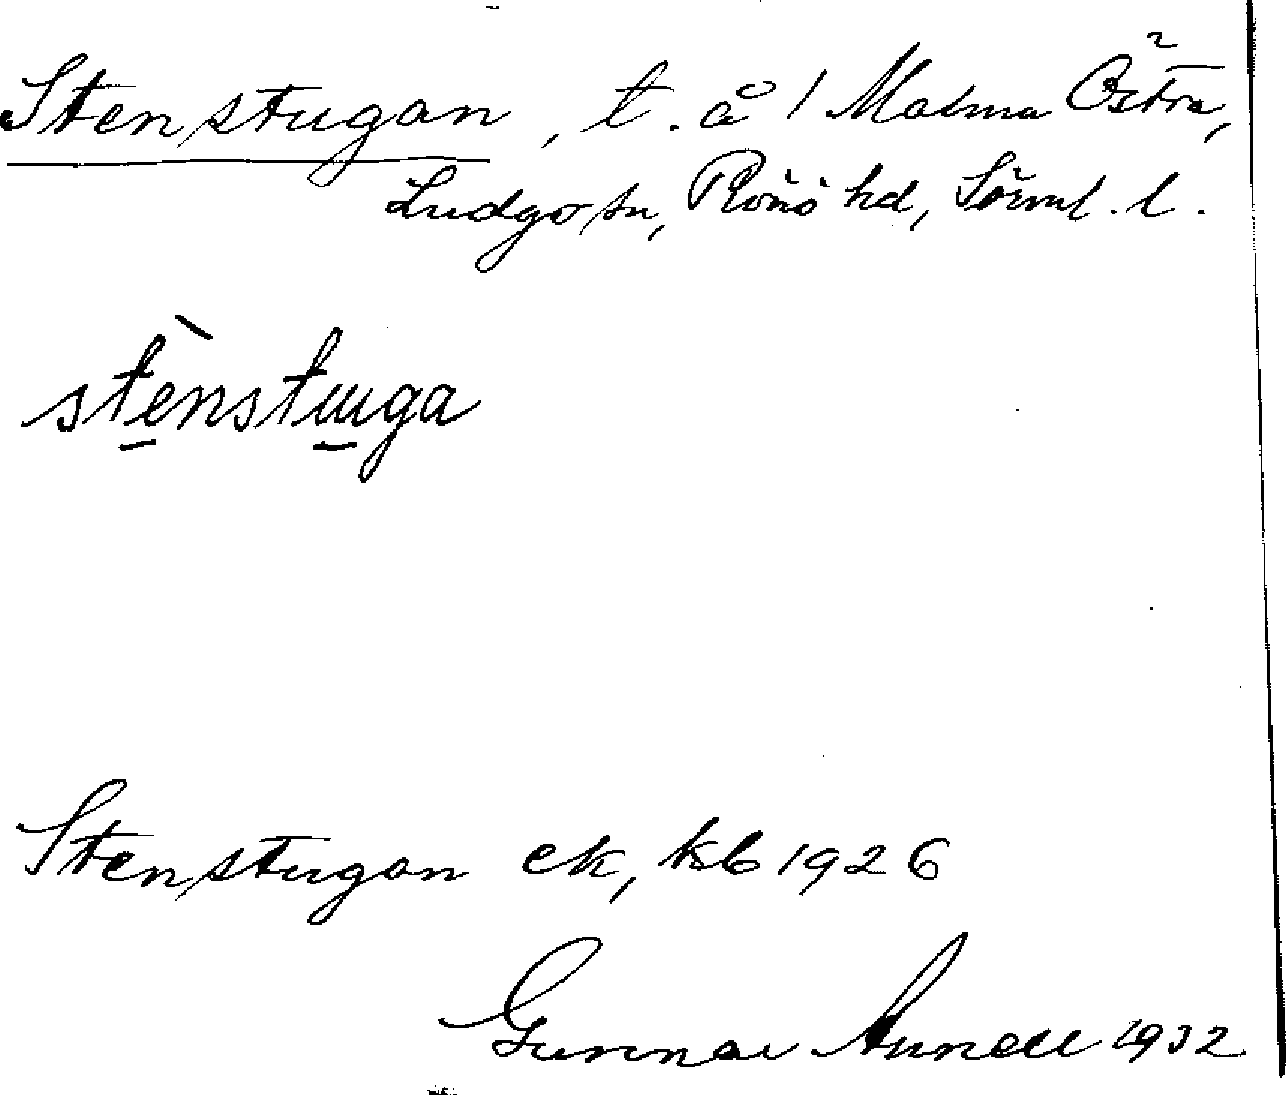 Stenstugan, t. å 1 Malma Östra,
Ludgo sn, Rönö hd, Sörml. l.
stènstuga
Stenstugan ek, kb 1926
Gunnar Aunell 1932